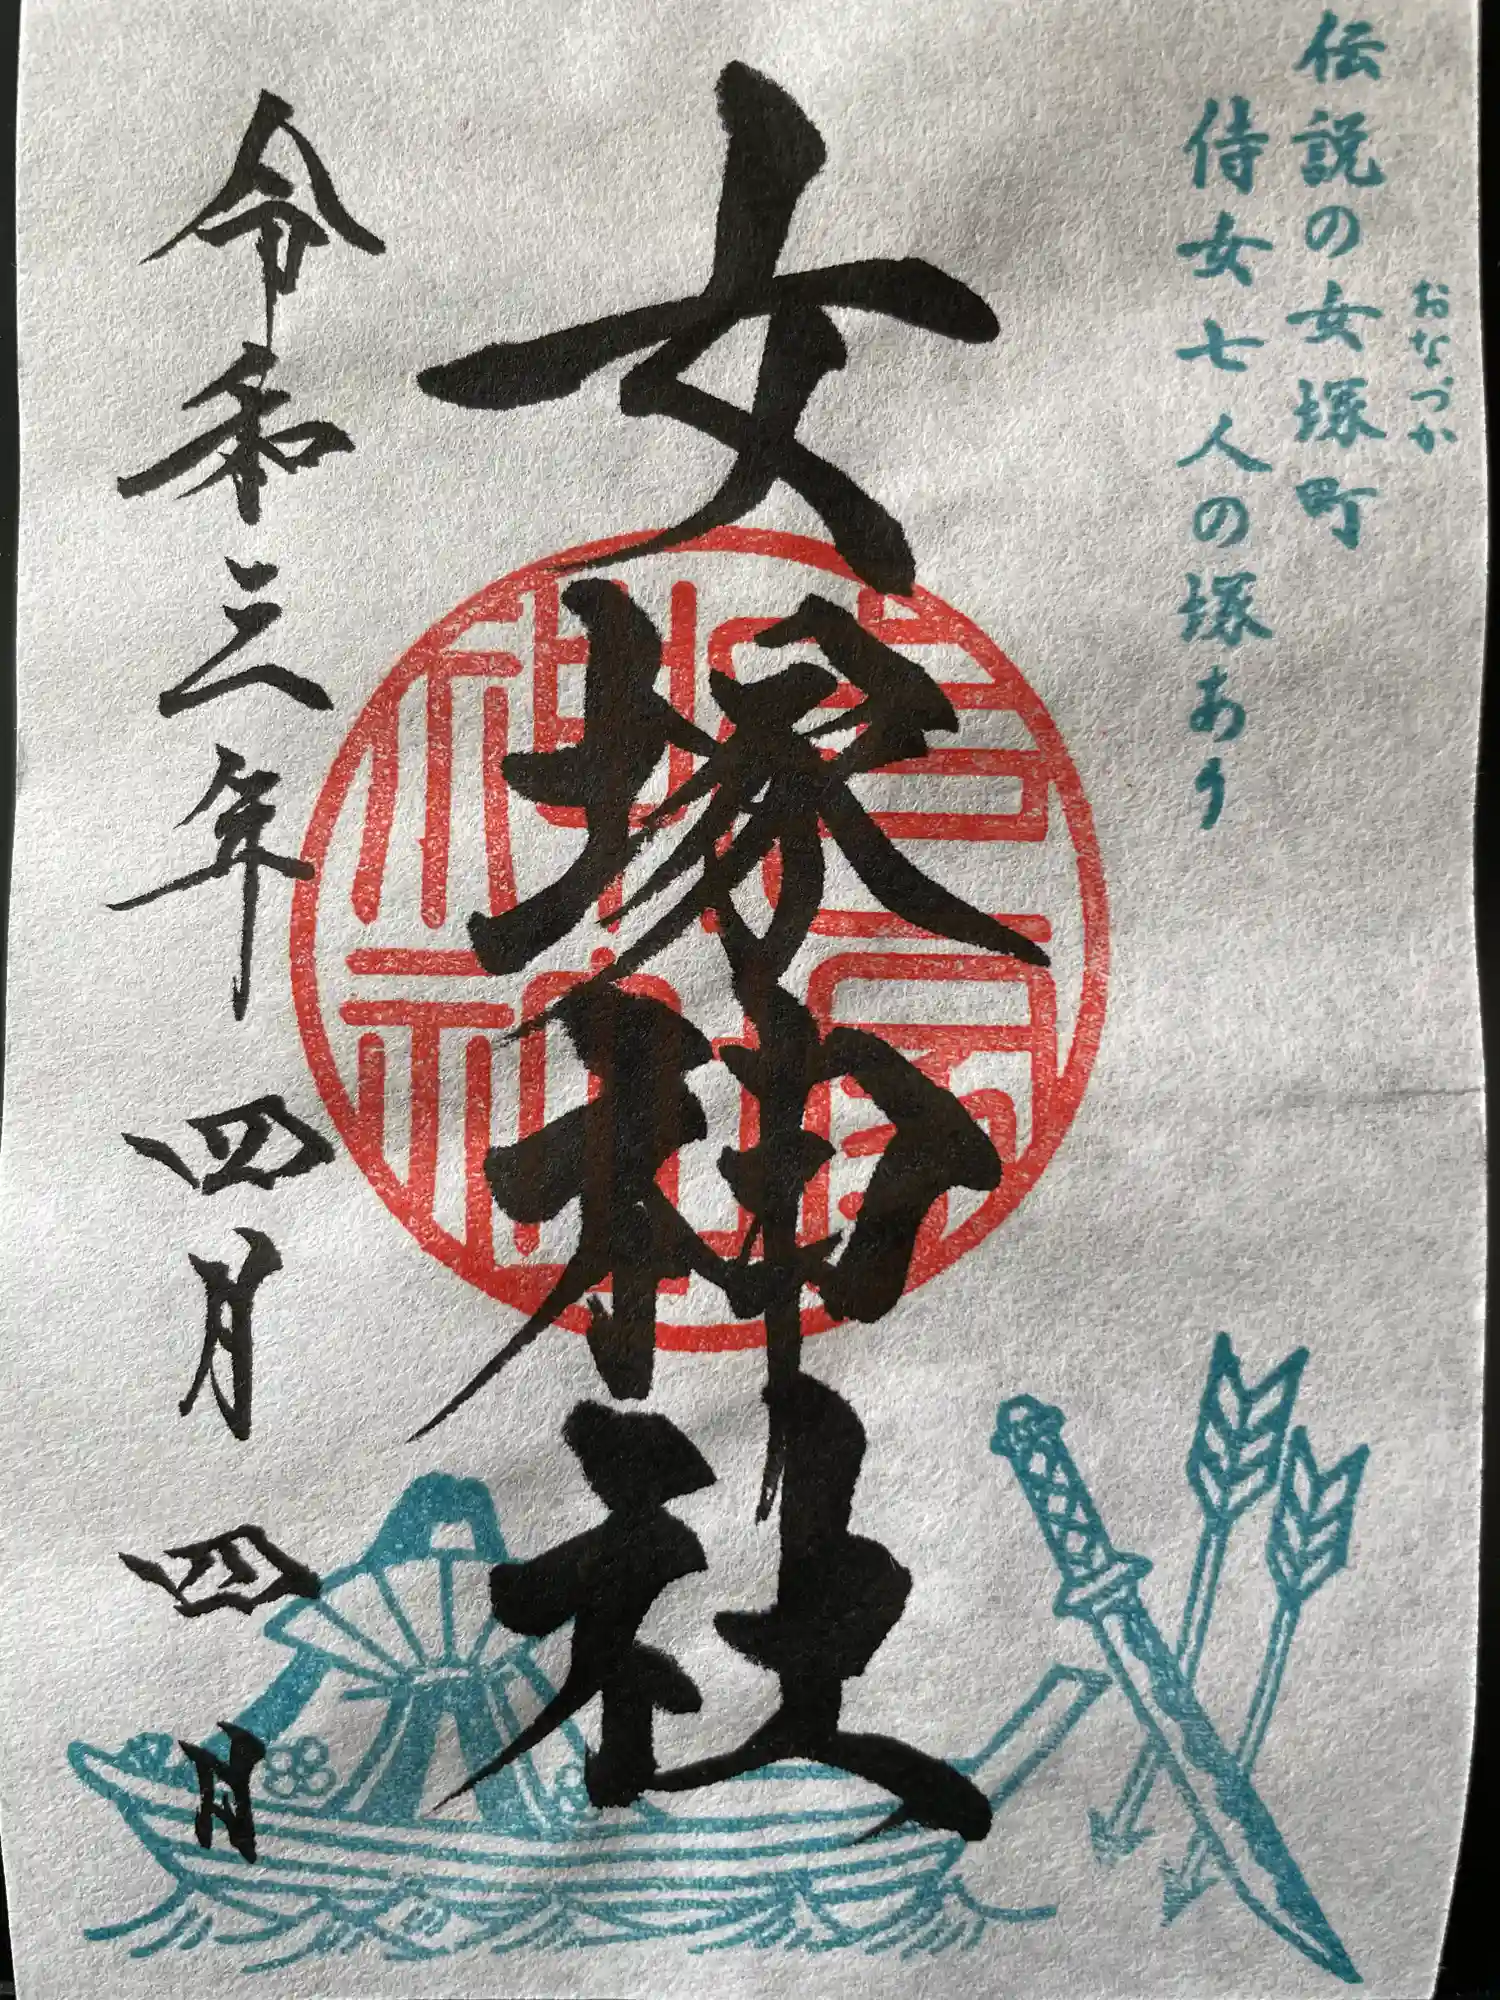 伝説の女塚町
おなづか
侍女七人の塚あり
女塚神社
令和三年四月四日